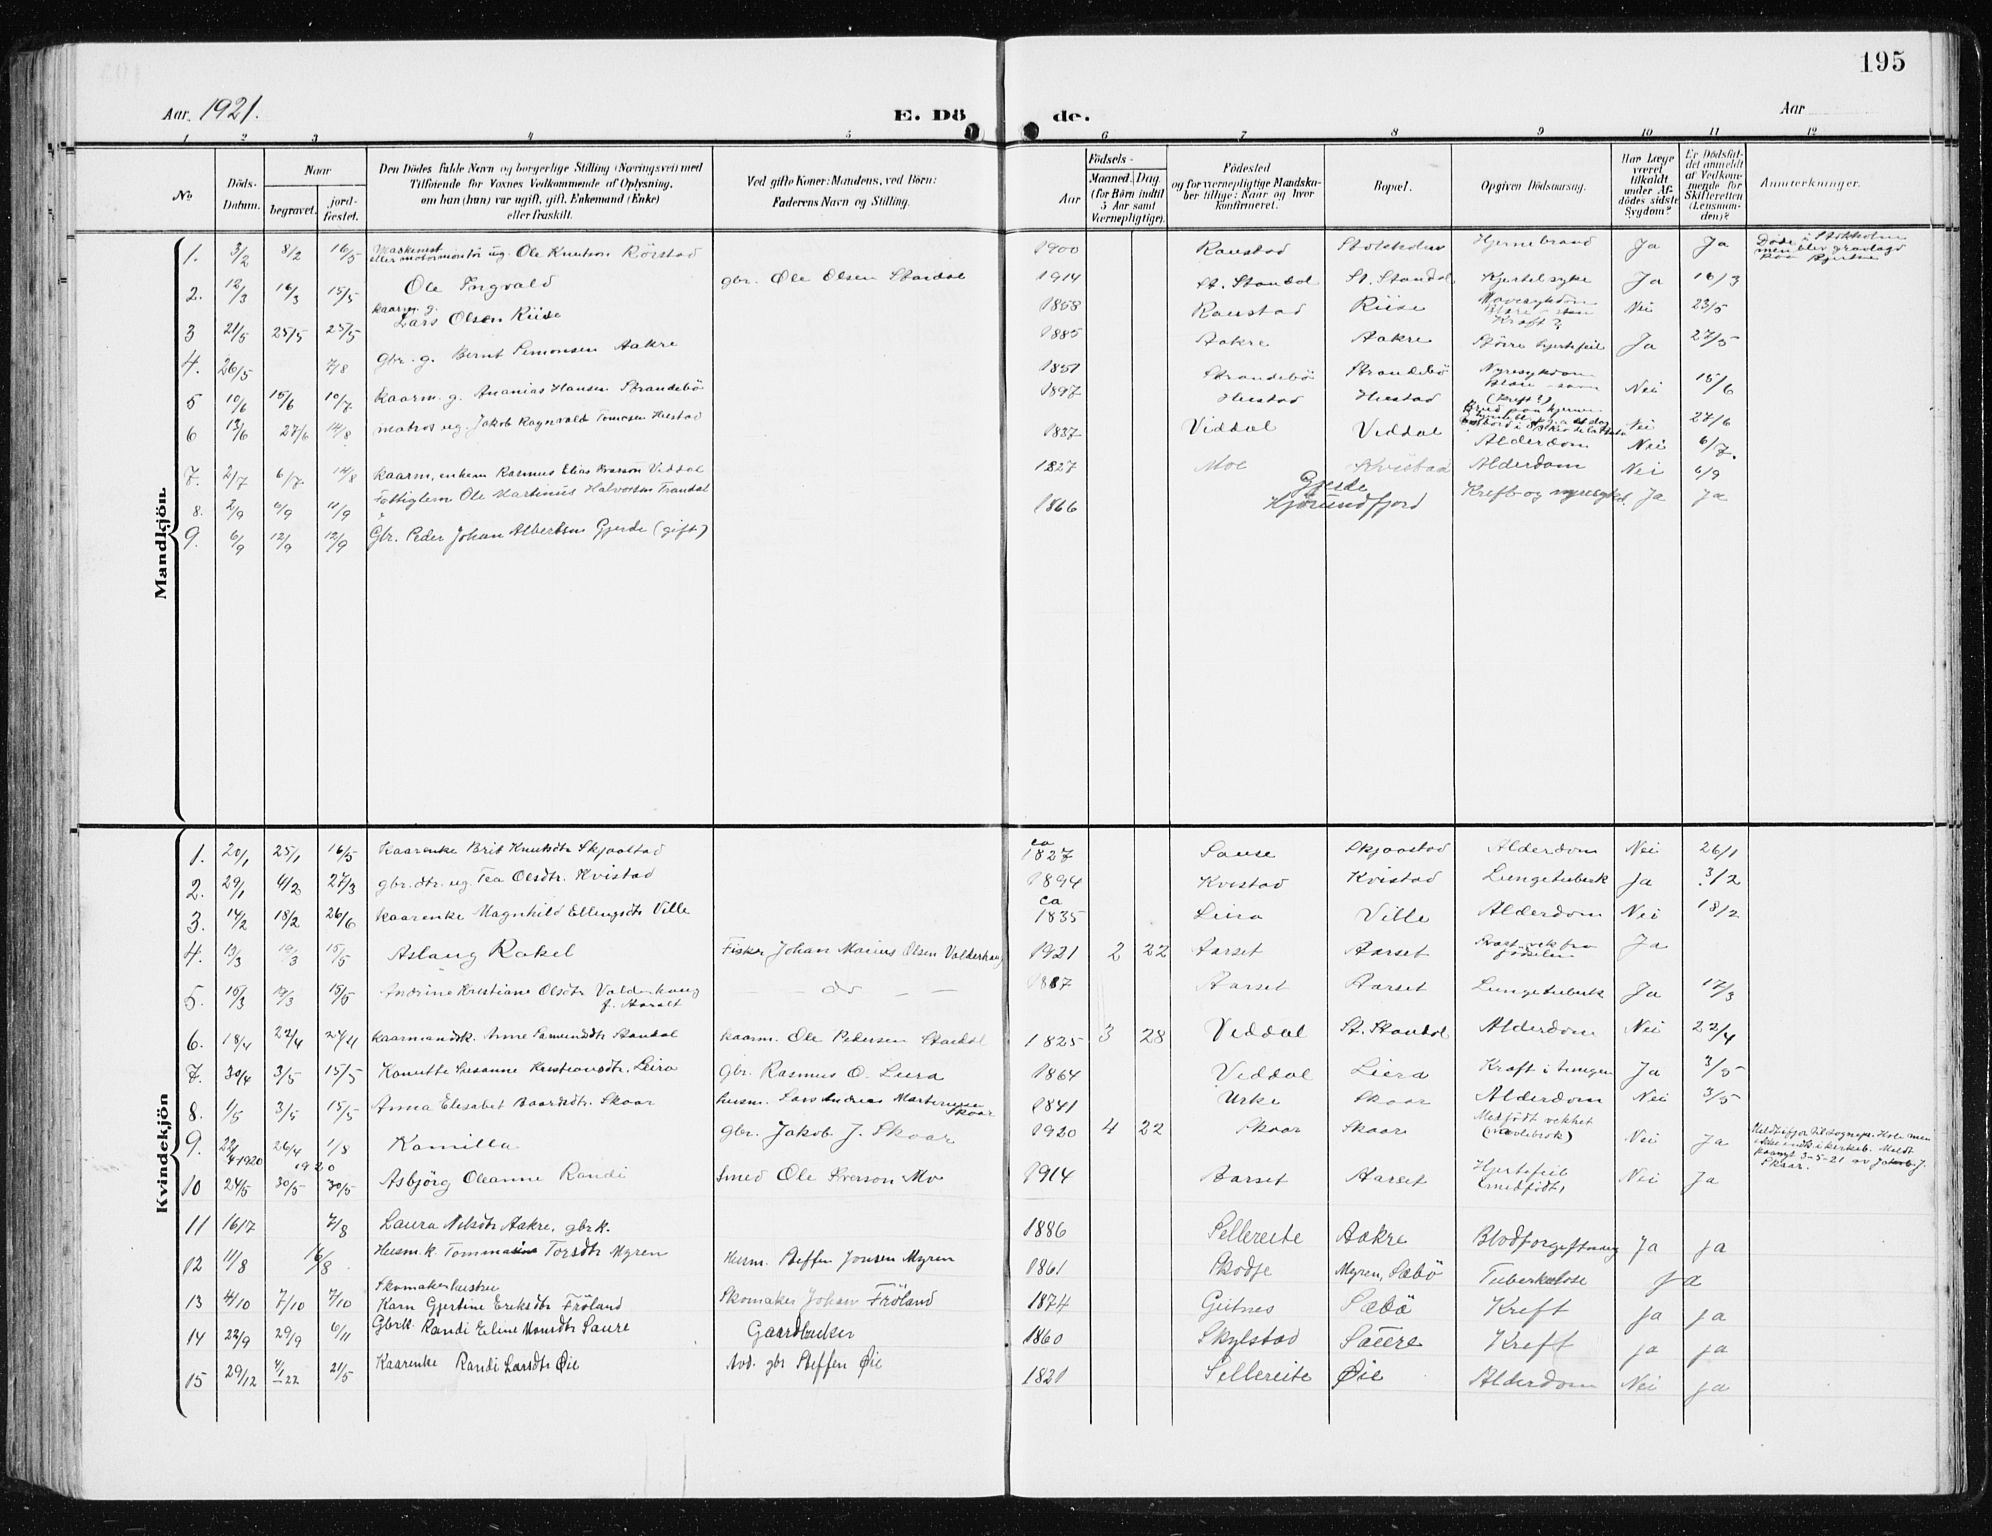 195
Aar. 1921.
E. Dö
de.
Aar
1 2 3 4 5 6 7 8 9 10 11 12
No.
Döds-Datum.
Naar
begravet.
jord-fæstet.
Den Dödes fulde Navn og borgerlige Stilling (Næringsvei) med
Tilföiende for Voxnes Vedkommende af Oplysning,
om han (hun) var ugift, gift, Enkemand (Enke)
eller fraskilt.
Ved gifte Koner: Mandens, ved Börn:
Faderens Navn og Stilling.
Födsels-
Aar
Maaned. Dag.
(for Börn indtil
5 Aar samt
Værnepligtige).
Födested
og for værnepligtige Mandska-
ber tillige: Naar og hvor
konfirmeret.
Bopæl.
Opgiven Dödsaarsag.
Har Læge
været
tilkaldt
under Af-
dödes sidste
Sygdom?
Er Dödsfal-
det anmeldt
af Vedkom-
mende for
Skifteretten
(Lensman-
den)?
Anmærkninger.
Mandkjön.
1. 3/2 8/2 16/5 Maskinist eller motormontör ug. Ole Knutson Rörstad 1900 Raustad Hjernebrand Ja Ja Döde i Stokholm men blev gravlagd
2. 12/3 16/3 15/5 Ole Ingvald gbr. Ole Olsen Standal 1914 St. Standal St. Standal Kjertelsyke Ja 16/3
3 21/5 25/5 25/5 kaarm. g. Lars Olsen Riise 1858 Raustad Riise Mavesykdom Kræft? Nei 23/5
4. 26/5 7/8 gbr. g. Bernt Simonsen Aakre 1885 Aakre Aakre Större hjertefeil Ja 27/5
5 10/6 15/6 10/7 kaarm. g. Ananias Hansen Strandebö 1851 Strandebö Strandebö Nyresykdom (Kreft?) Nei 15/6
6 13/6 27/6 14/8 matros ug. Jakob Ragnvald Tomesen Hustad 1897 Hustad Hustad Nei 27/6
7. 2/7 6/7 14/8 kaarm, enkem Rasmus Elias Iversön Viddal 1837 Viddal Viddal Alderdom Nei 6/7.
8. 2/9 6/9 11/9 Fattiglem Ole Martinus Halvorsen Trandal 1827 Moe Kvistad Alderdom Nei 6/9
9. 6/9 12/9 12/9 Gbr. Peder Johan Albertsen Gjerde (gift) 1866 Gjerde Hjörundfjord Kreft og nyresykd. Ja Ja
Kvindekjön
1. 20/1 25/1 16/5 Kaarenke Brit Knutsdtr Skjaastad ca 1827 Sause Skjaastad Alderdom Nei 26/1
2. 29/1 4/2 27/3 gbr.dtr. ug. Tea Olsdtr. Kvistad 1894 Kvistad Kvistad Lungetuberk Ja 3/2
3. 14/2 18/2 26/6 kaarenke Magnhild Ellingsdtr Ville ca 1835 Leira Ville Alderdom Nei 18/2
4. 13/3 19/3 15/5 Aslaug Rakel Fisker Johan Marius Olsen Valderhaug 1921 2 22 Aarset Aarset Svært vek fra födselen Ja
5. 15/3 19/3 15/5 Andrine Kristiane Olsdtr Valderhaug f. Aarset — do — — 1887 Aarset Aarset Lungetuberk Ja 17/3
6. 18/4 22/4 24/4 kaarmandsk. Anne Samundsdtr Standal kaarm. Ole Pedersen Standal 1825 3 28 Viddal St. Standal Alderdom Nei 22/4
7. 30/4 3/5 15/5 Konutte Susanne Kristiansdtr. Leira gbr. Rasmus O. Leira 1864 Viddal Leira Kræft i Lungen Ja 3/5
8. 1/5 3/5 15/5 Anna Elisabet Baardsdtr. Skaar husm. Lars Andreas Martinussen Skaar 1841 Urke Skaar Alderdom Nei 3/5
9. 22/4 1920 26/4 1920 1/8 Kamilla gbr. Jakob J. Skaar 1920 4 22 Skaar Skaar Medfödt vekhet (navlebrok) Nei Ja
10 24/5 30/5 30/5 Asbjörg Oleanne Randi Smed Ole Iverson Mo 1914 Aarset Aarset Hjertefeil (medfödt) Nei Ja
11 16/7 7/8 Laura Nilsdtr Aakre, gbrk. 1886 Sellereite Aakre Blodforgiftning Ja Ja
12 11/8 16/8 Husm. k. Tommasine Torsdtr Myren Husm. Steffen Jonsen Myren 1861 Skodje Myren, Sæbö Tuberkulose Ja
13 4/10 7/10 7/10 Skomakerhustru Karn Gjertine Eriksdtr Fröland Skomaker Johan Fröland 1874 Geitnes Sæbö Kreft Ja Ja
14 22/9 29/9 6/11 Gbrk. Randi Eline Monsdtr Saure Gaardbruker 1860 Skylstad Saure Kreft Ja Ja
15 29/12 4/1 22 21/5 Kaarenke Randi Larsdtr Øie Avd. gbr Steffen Øie 1821 Sellereite Øie Alderdom Nei Ja